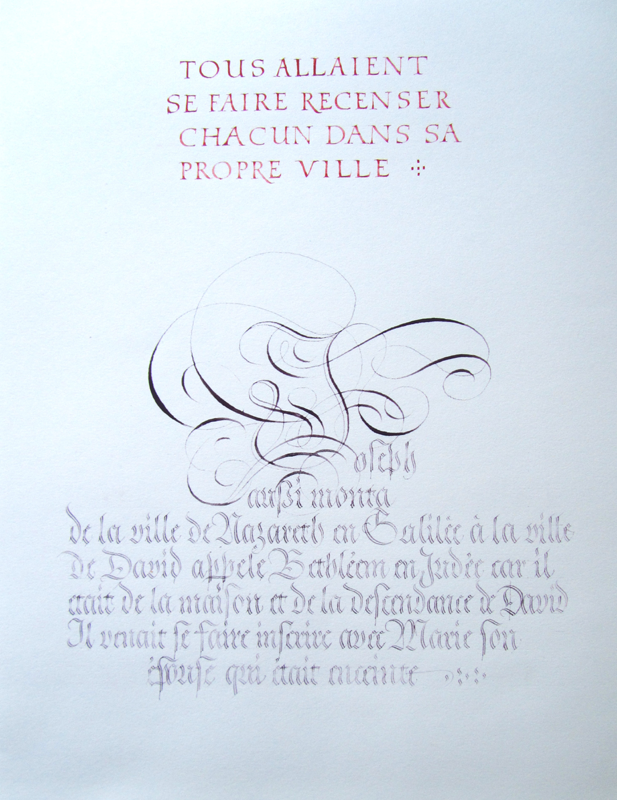 TOUS ALLAIENT
SE FAIRE RECENSER
CHACUN DANS SA
PROPRE VILLE
Joseph
aussi monta
de la ville de Nazareth en Galilée à la ville
de David appelé Bethléem en Judée car il
était de la maison et de la descendance de David
Il venait se faire inscrire avec Marie son
épouse qui était enceinte